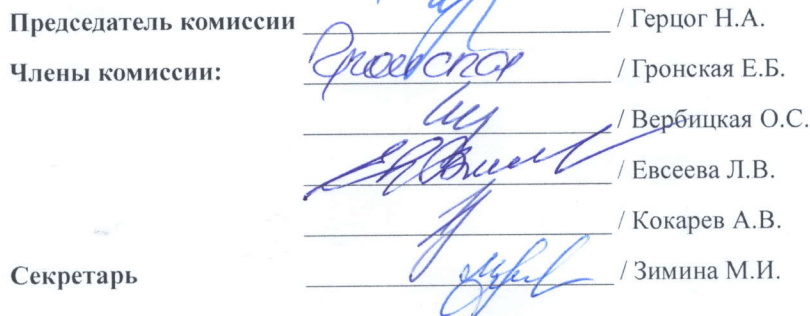 Председатель комиссии / Герцог Н.А.
Члены комиссии: / Гронская Е.Б.
/ Вербицкая О.С.
/ Евсеева Л.В.
/ Кокарев А.В.
Секретарь / Зимина М.И.